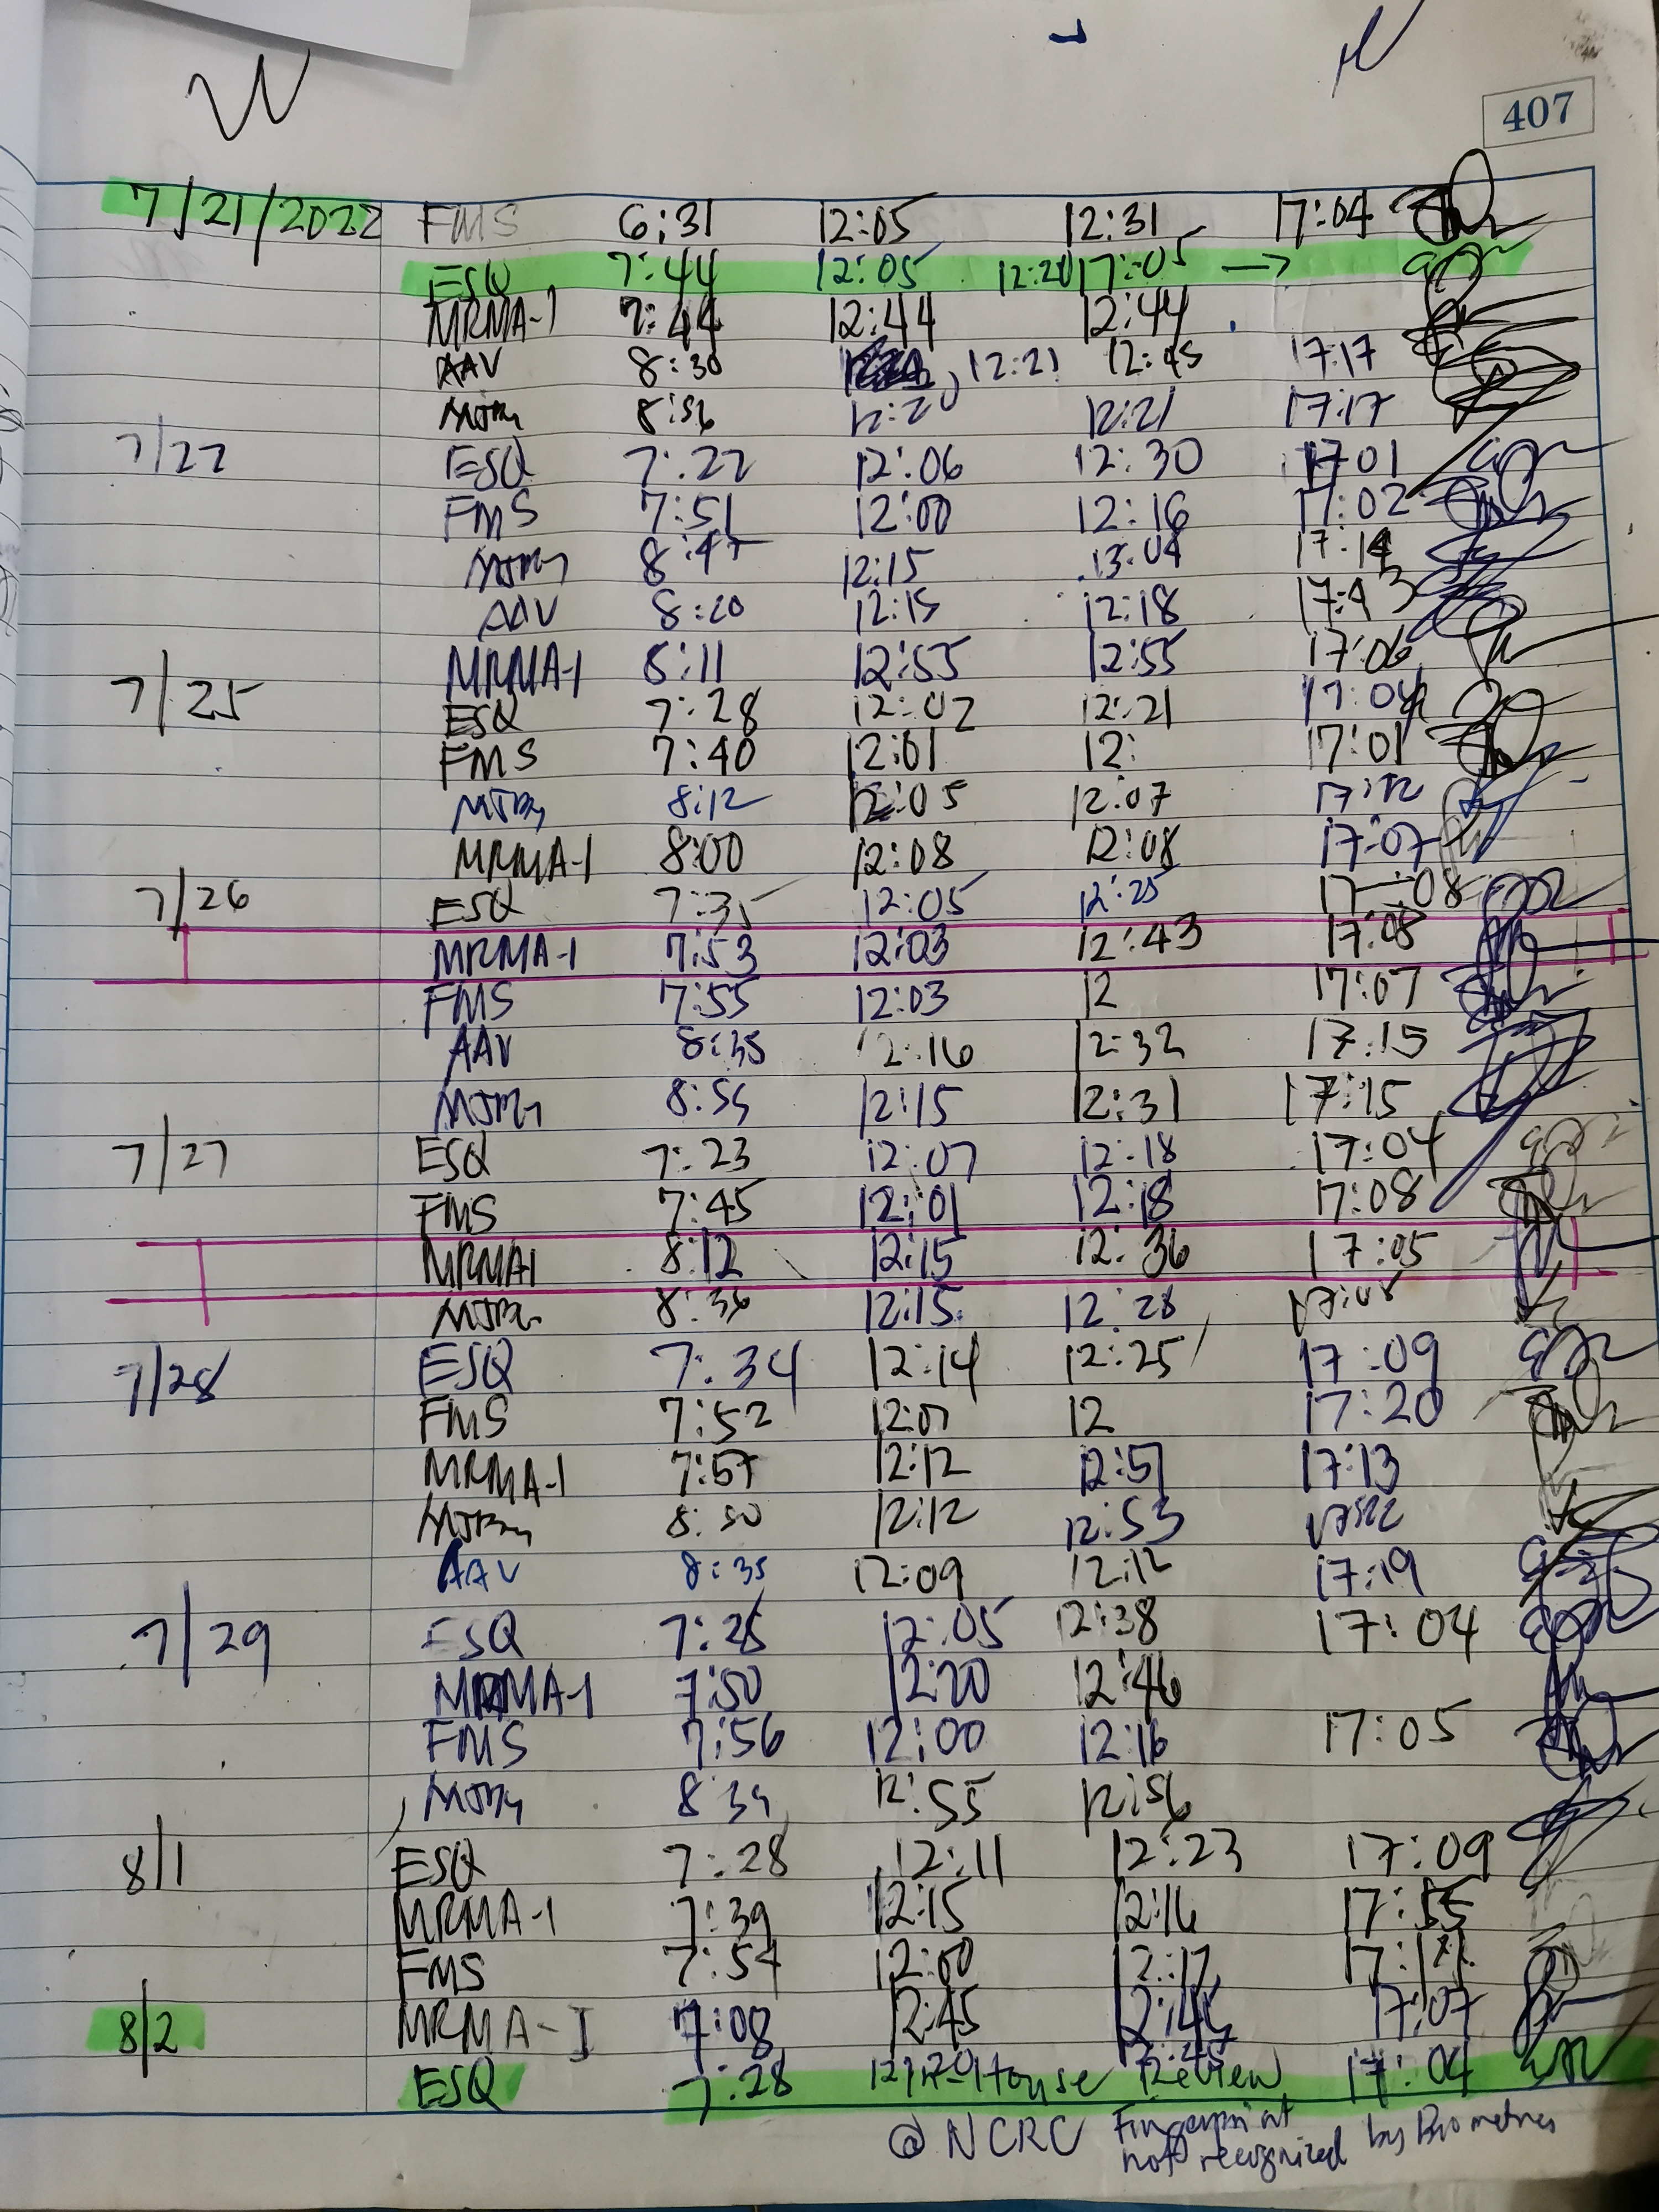 407
7/21/2022 FMS 6:31 12:05 12:31 17:04
ESQ 7:44 12:05 12:20 17:05 →
MRMA-1 7:44 12:44 12:44
AAV 8:30 , 12:21 12:45 17:17
8:56 12:20 12:21 17:17
7/22 ESQ 7:22 12:06 12:30 17:01
FMS 7:51 12:00 12:16 17:02
8:47 12:15 13:04 17:14
AAV 8:20 12:15 12:18 17:43
MRMA-1 8:11 12:55 12:55 17:06
7/25 ESQ 7:28 12:02 12:21 17:04
FMS 7:40 12:01 12: 17:01
8:12 12:05 12:07 17:12
MRMA-1 8:00 12:08 12:08 17:07
7/26 ESQ 7:35 12:05 12:25 17:08
MRMA-1 7:53 12:03 12:43 17:08
FMS 7:55 12:03 12 17:07
AAV 8:35 12:16 12:32 17:15
8:55 12:15 12:31 17:15
7/27 ESQ 7:23 12:07 12:18 17:04
FMS 7:45 12:01 12:18 17:08
MRMA1 8:12 12:15 12:36 17:05
8:36 12:15 12:28
7/28 ESQ 7:34 12:14 12:25 17:09
FMS 7:52 12:01 12 17:20
MRMA-1 7:57 12:12 12:51 17:13
8:50 12:12 12:53
AAV 8:35 12:09 12:12 17:19
7/29 ESQ 7:25 12:05 12:38 17:04
MRMA-1 7:50 12:20 12:46
FMS 7:56 12:00 12:16 17:05
8:34 12:55 12:56
8/1 ESQ 7:28 12:11 12:23 17:09
MRMA-1 7:39 12:15 12:16 17:55
FMS 7:54 12:00 12:17
8/2 MRMA-I 7:08 12:45 12:46 17:07
ESQ 7:28 In-House Review 17:04
@ NCRC Fingerprint not recognized by Biometrics